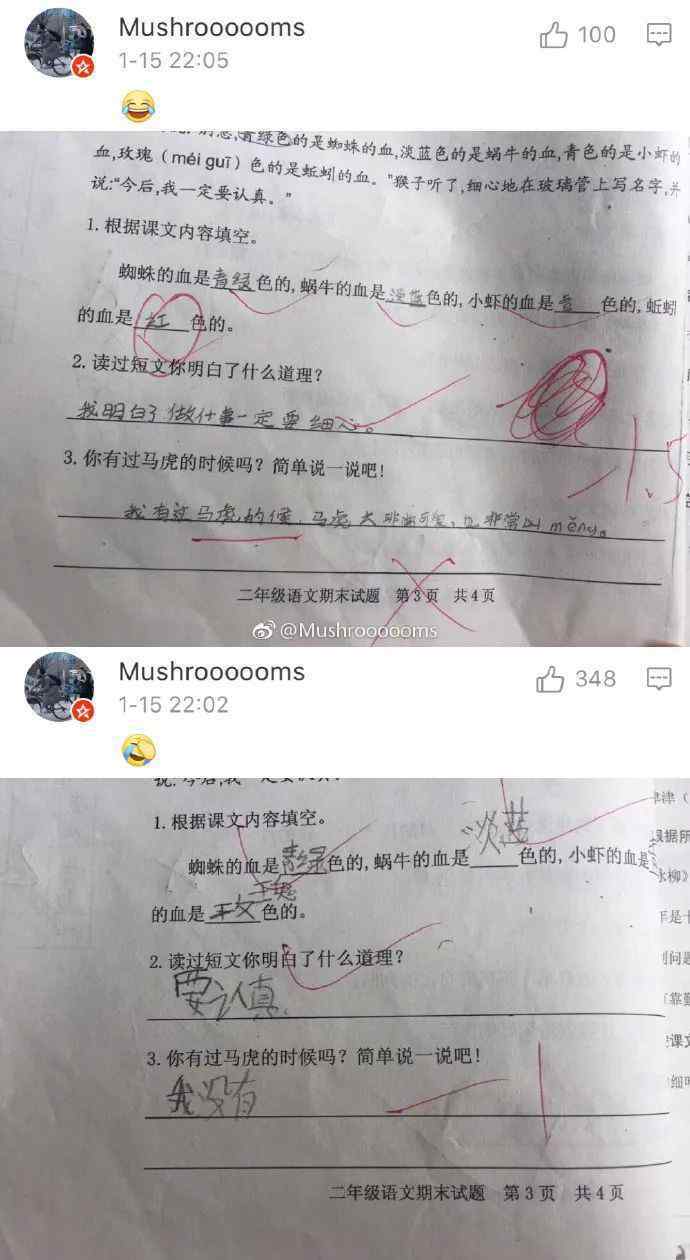 Mushroooooms
100
1-15 22:05
青绿色的是蜘蛛的血,淡蓝色的是蜗牛的血,青色的是小虾的
血,玫瑰(méi guī)色的是蚯蚓的血。”猴子听了,细心地在玻璃管上写名字,并
说:“今后,我一定要认真。”
1.根据课文内容填空。
蜘蛛的血是青绿色的,蜗牛的血是淡蓝色的,小虾的血是青色的,蚯蚓
的血是红色的。
2.读过短文你明白了什么道理?
我明白了做什事一定要细心。
3.你有过马虎的时候吗?简单说一说吧!
-1.5
我有过马虎的候,马虎大非常可爱,也非常以měng。
二年级语文期末试题 第3页 共4页
@Mushroooooms
Mushroooooms
348
1-15 22:02
1.根据课文内容填空。
蜘蛛的血是青绿色的,蜗牛的血是淡蓝色的,小虾的血是
的血是玫瑰色的。
2.读过短文你明白了什么道理?
要认真.
3.你有过马虎的时候吗?简单说一说吧!
我没有
二年级语文期末试题 第3页 共4页